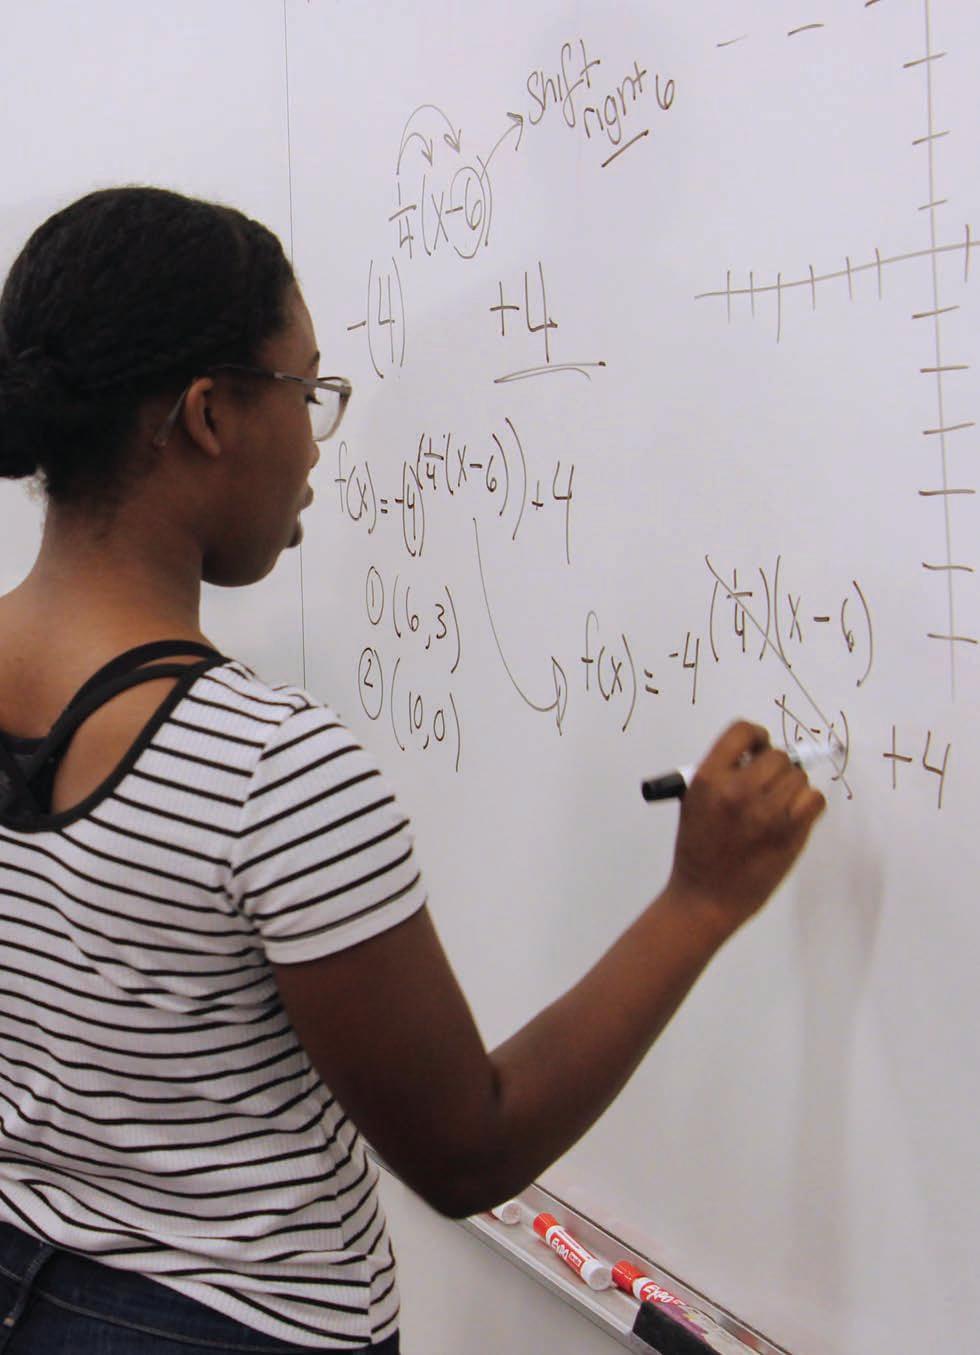 shift
right 6
1/4(x-6)
-(4) +4
f(x)=-(4)^(1/4(x-6))+4
① (6,3)
② (10,0)
f(x)=-4^(1/4)(x-6)
+4
EXPO
EXPO